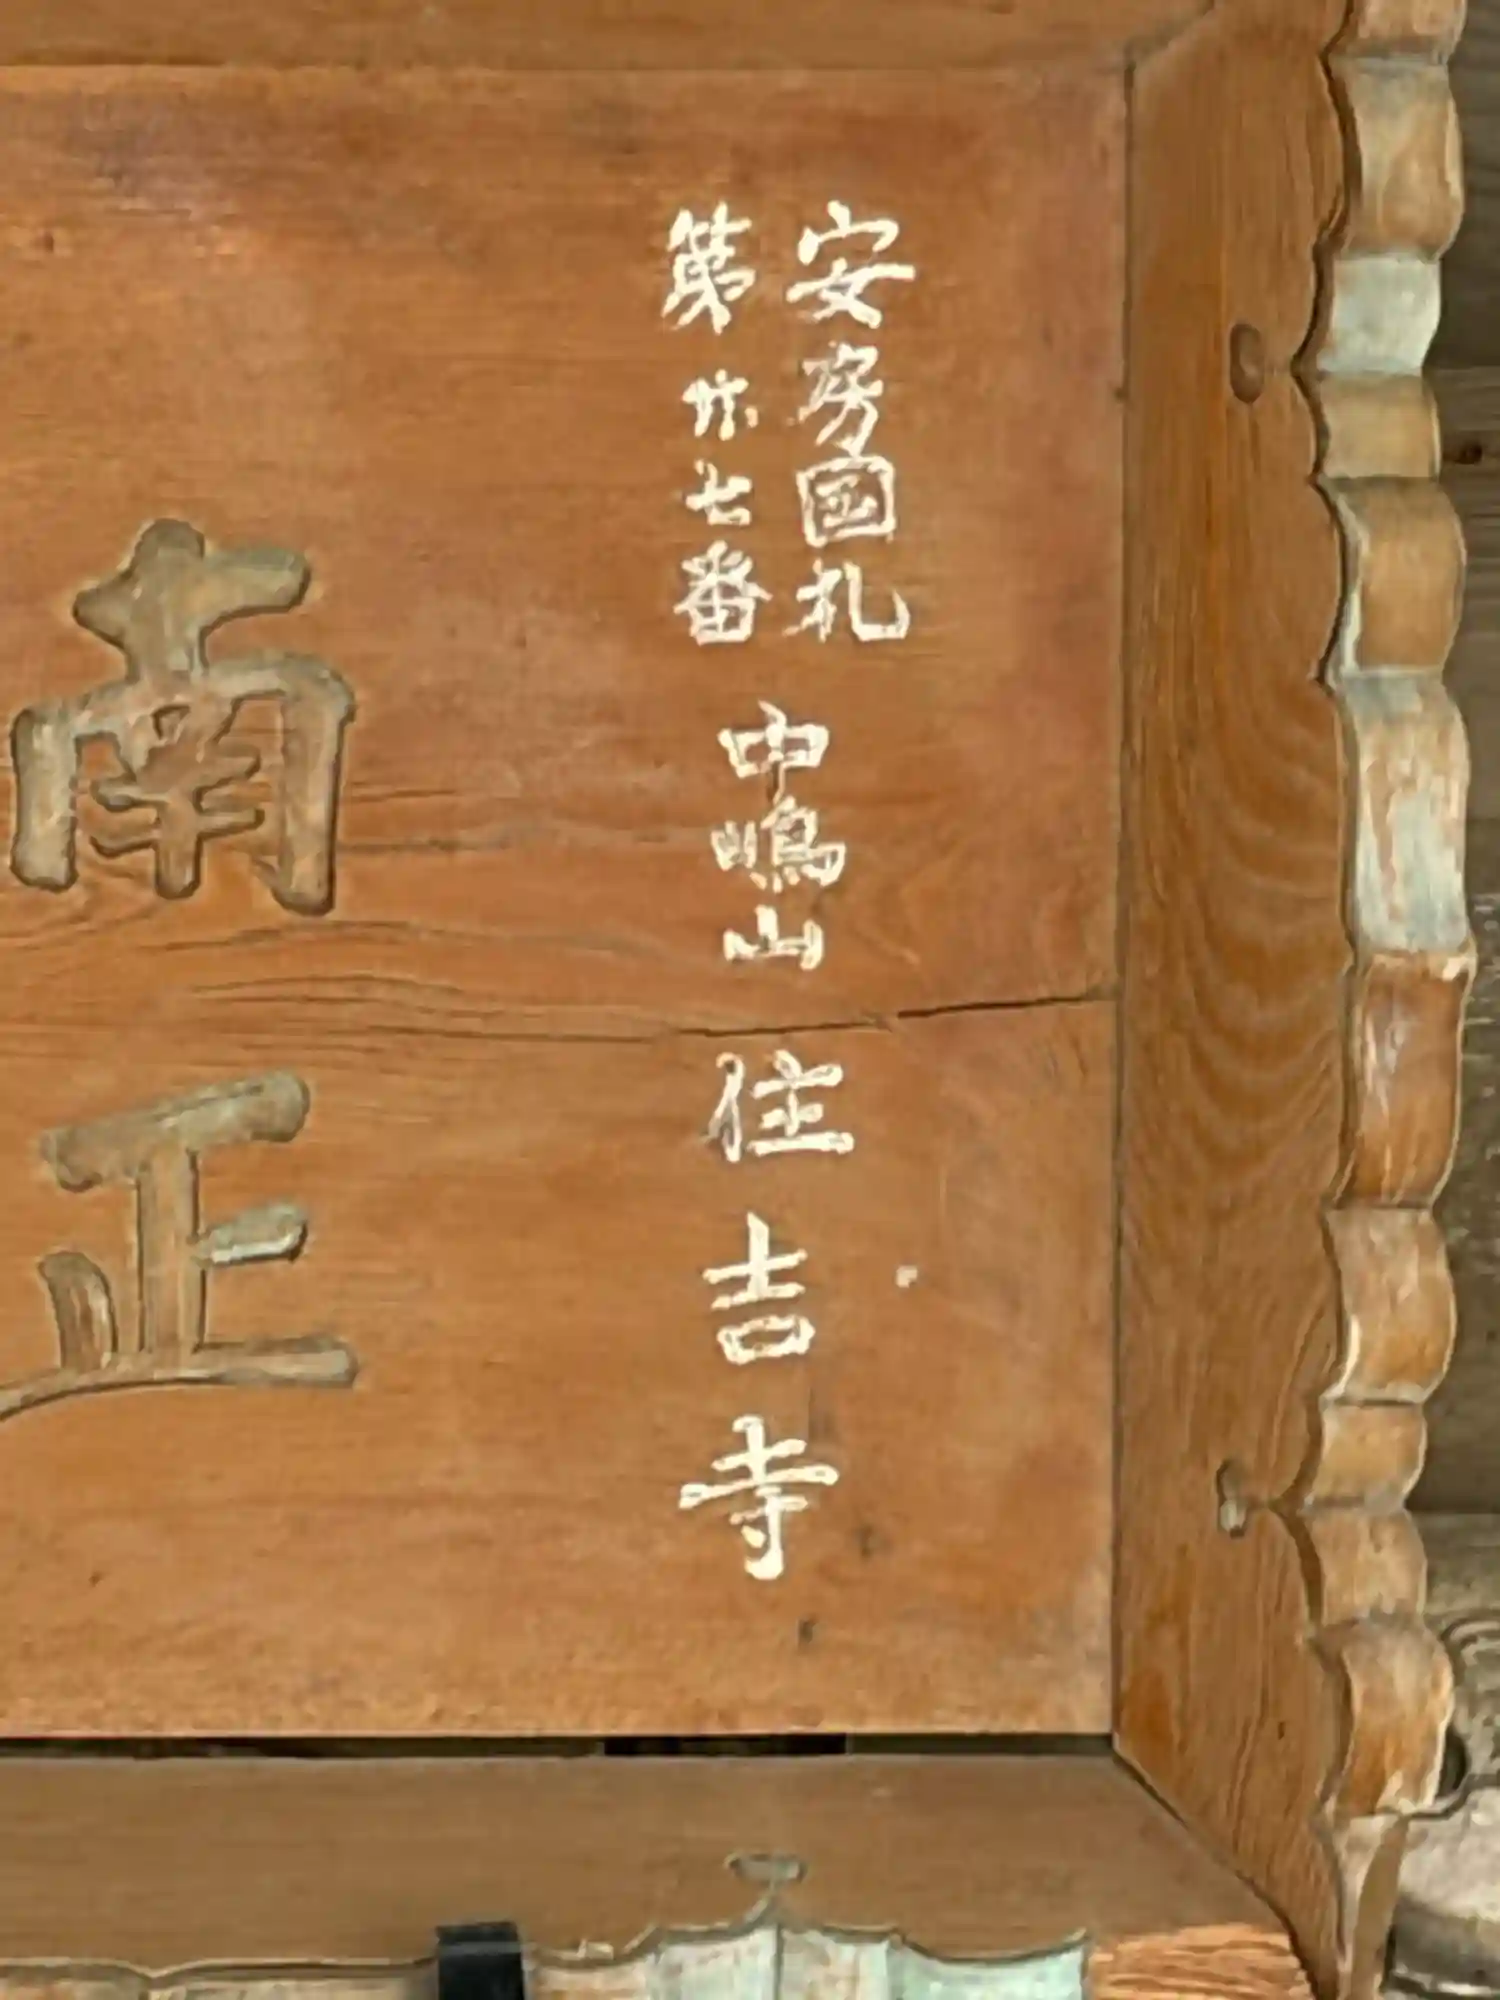 安房國札
第 七番
中嶋山 住吉寺
南正